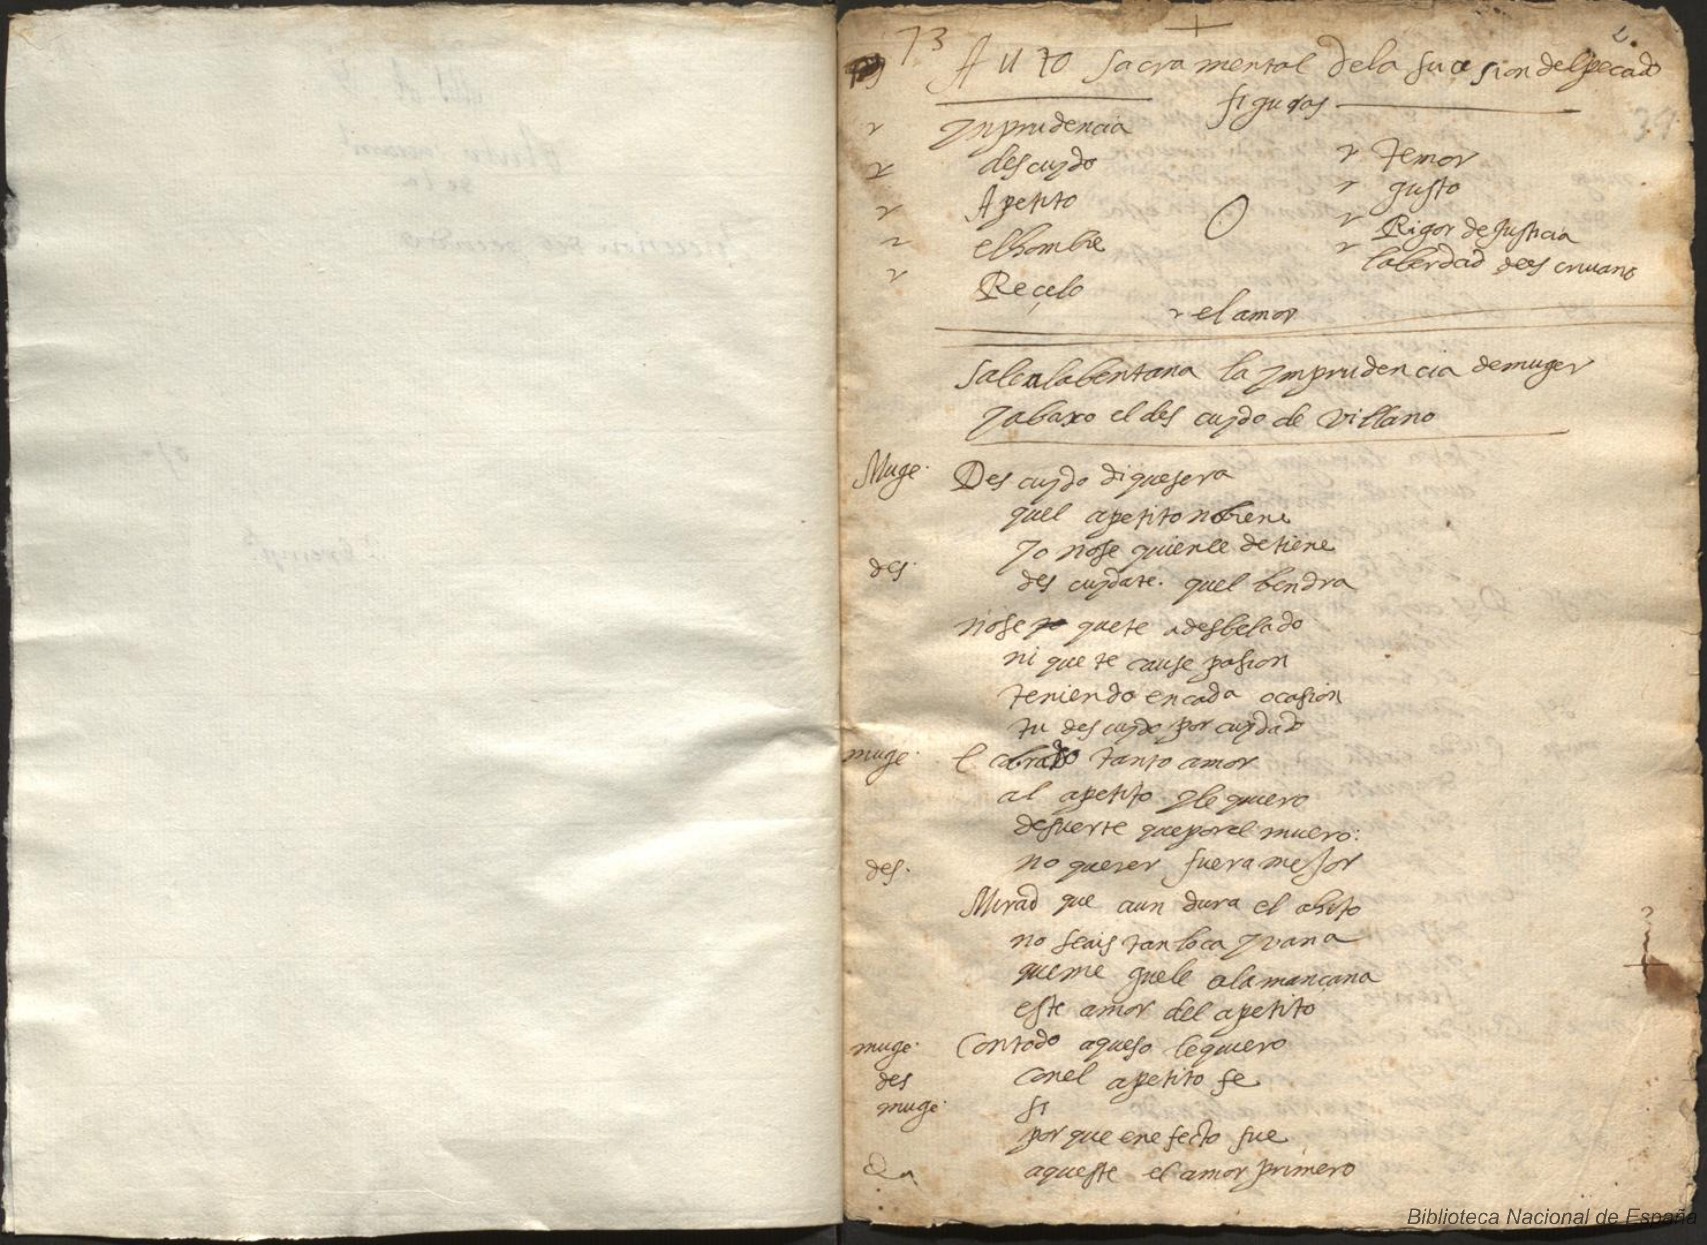 73
2.
Auto sacramental dela sucesion del pecado
figuras
Ynprudencia
descuydo
Apetito
elhombre
Reçelo
Temor
gusto
Rigor de Justicia
laberdad de escriuano
el amor
Salealabentana la ymprudencia demuger
yabaxo el des cuydo de villano
Muge. Des cuydo di quesera
quel apetito nobiene
yo nose quienle detiene
des. des cuydate. quel bendra
nose que te adesbelado
ni que te cause pasion
teniendo encada ocasion
tu des cuydo por cuydado
muge. E cobrado tanto amor
al apetito yle quiero
desuerte queporel muero:
des. no querer fuera mejor
Mirad que aun dura el ahito
no seais tan loca yvana
queme guele alamançana
este amor del apetito
muge. Contodo aqueso lequiero
des conel apetito fe
muge. si
por que enefecto fue
aqueste el amor primero
Biblioteca Nacional de España